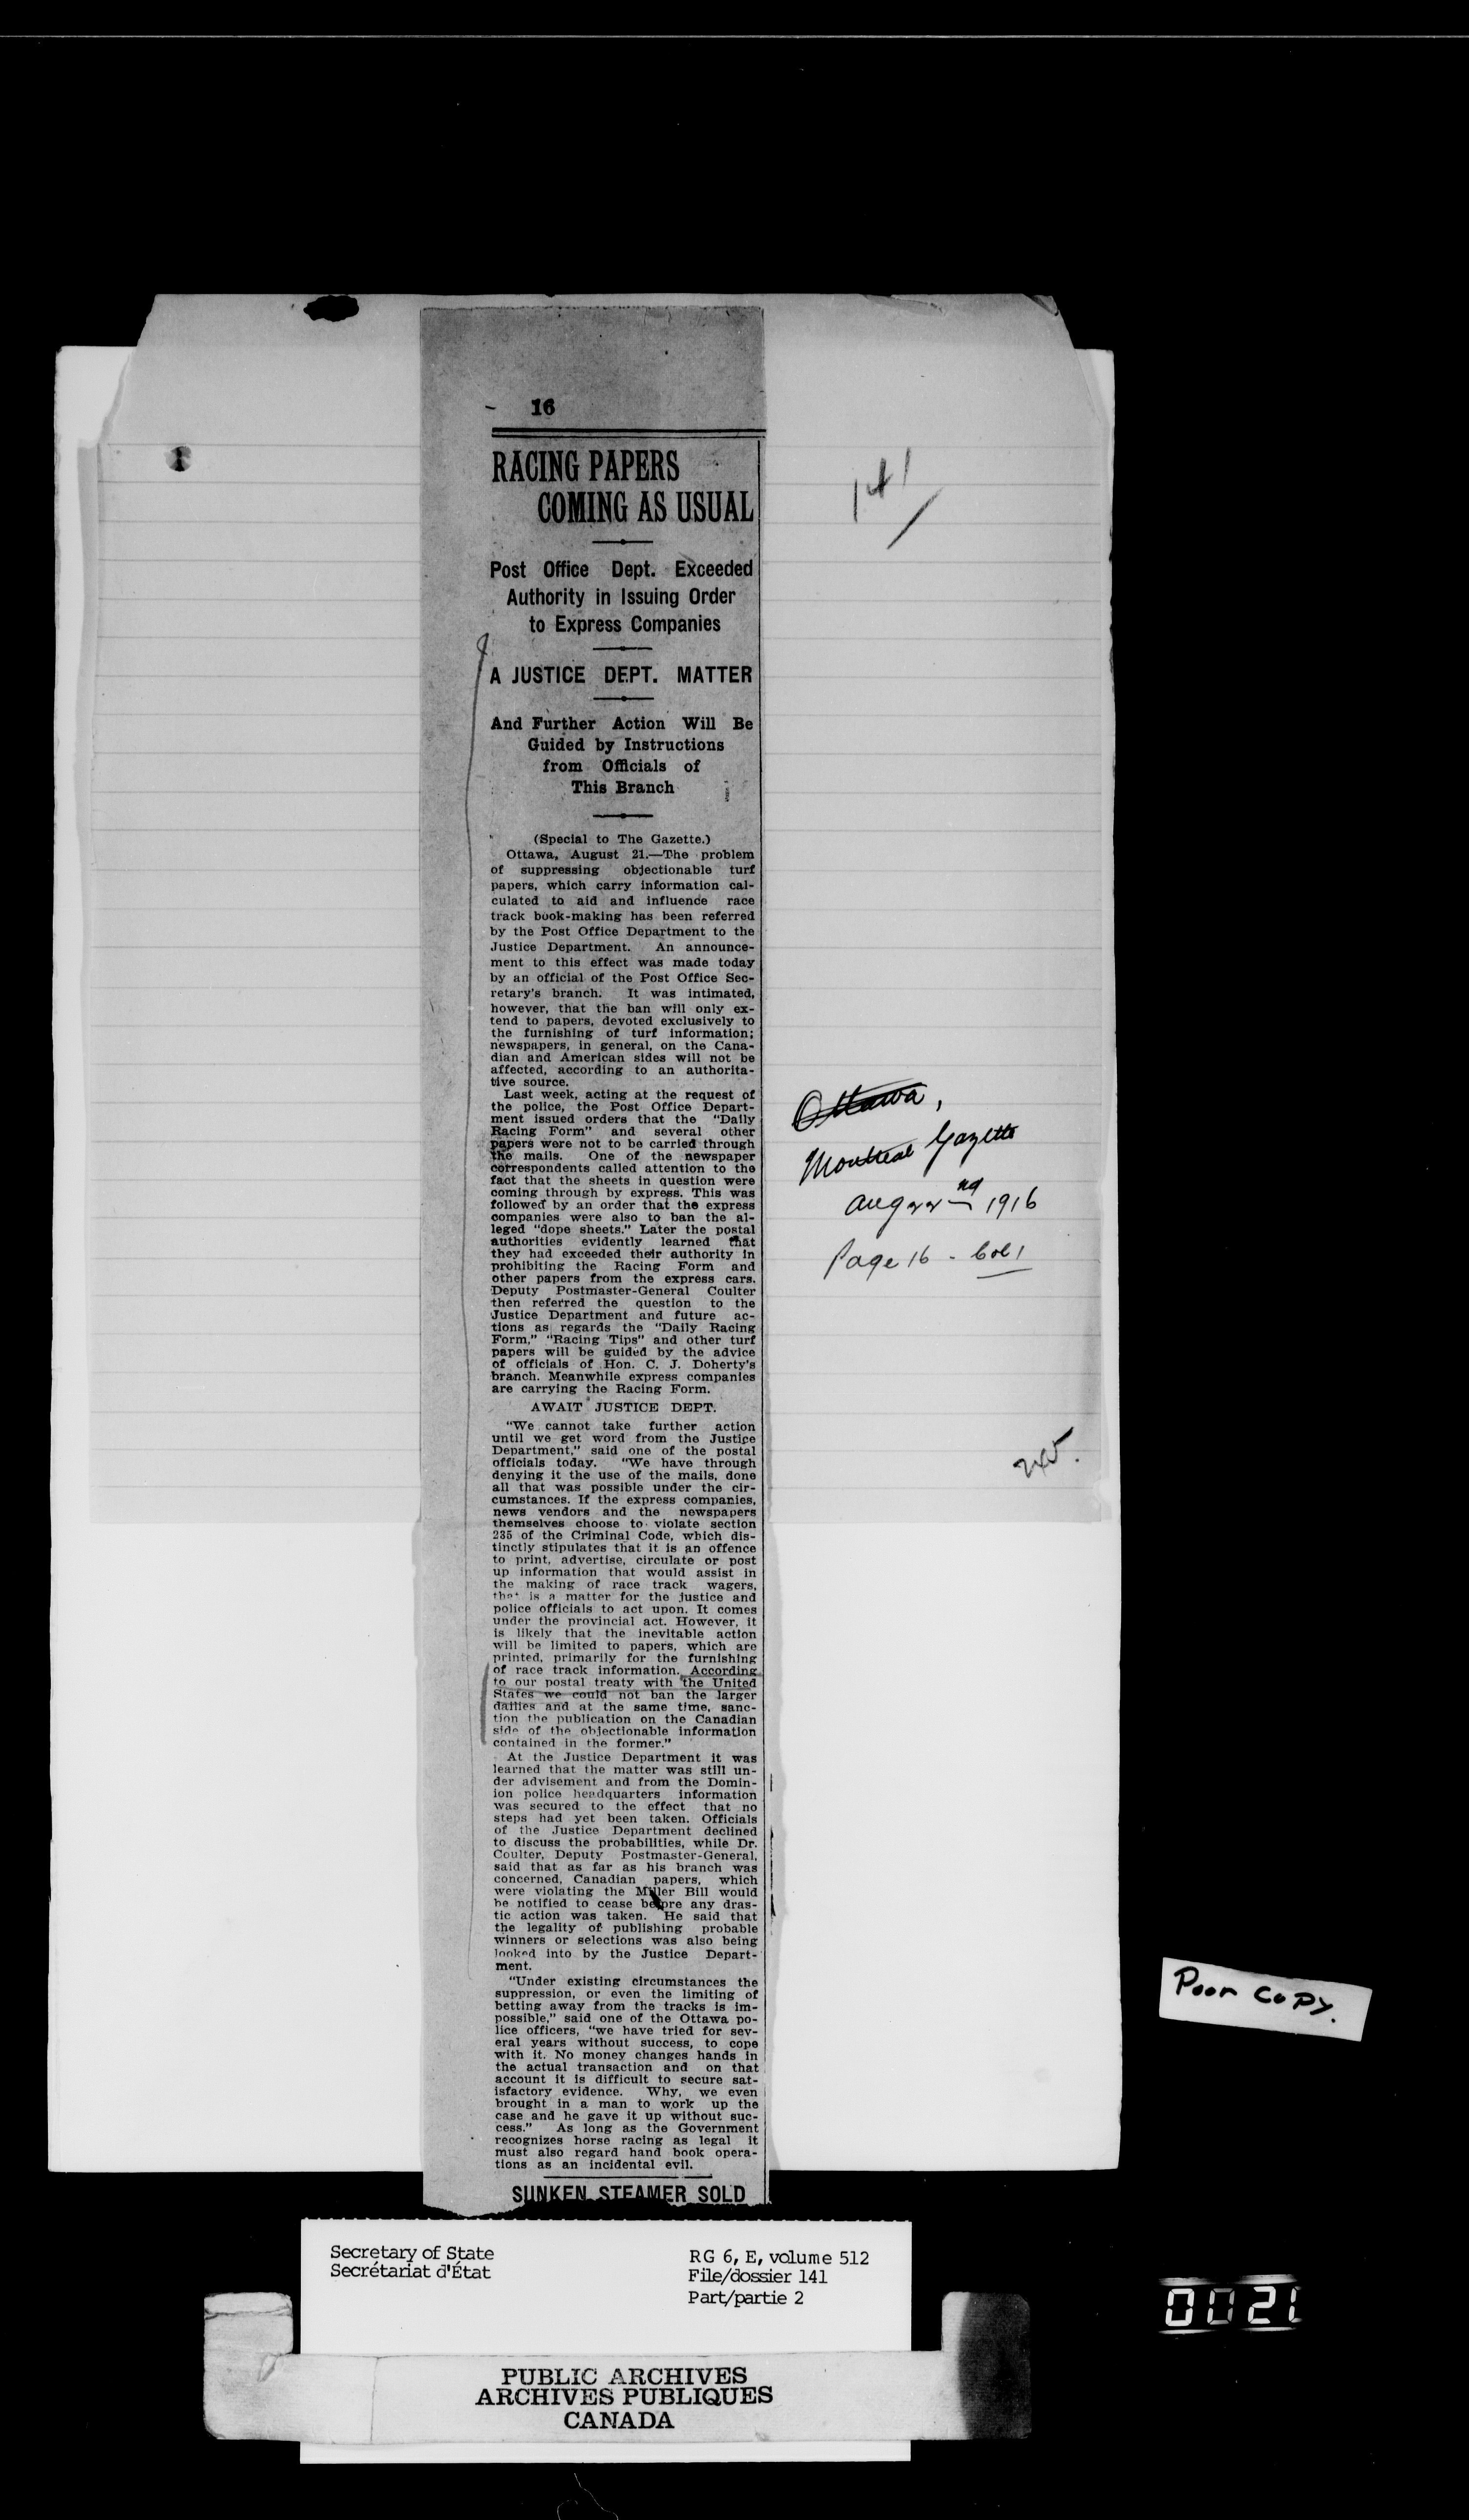 16
RACING PAPERS
COMING AS USUAL
Post Office Dept. Exceeded
Authority in Issuing Order
to Express Companies
A JUSTICE DEPT. MATTER
And Further Action Will Be
Guided by Instructions
from Officials of
This Branch
(Special to The Gazette.)
Ottawa, August 21.—The problem
of suppressing objectionable turf
papers, which carry information cal-
culated to aid and influence race
track book-making has been referred
by the Post Office Department to the
Justice Department. An announce-
ment to this effect was made today
by an official of the Post Office Sec-
retary's branch. It was intimated,
however, that the ban will only ex-
tend to papers, devoted exclusively to
the furnishing of turf information;
newspapers, in general, on the Cana-
dian and American sides will not be
affected, according to an authorita-
tive source.
Last week, acting at the request of
the police, the Post Office Depart-
ment issued orders that the "Daily
Racing Form" and several other
papers were not to be carried through
the mails. One of the newspaper
correspondents called attention to the
fact that the sheets in question were
coming through by express. This was
followed by an order that the express
companies were also to ban the al-
leged "dope sheets." Later the postal
authorities evidently learned that
they had exceeded their authority in
prohibiting the Racing Form and
other papers from the express cars.
Deputy Postmaster-General Coulter
then referred the question to the
Justice Department and future ac-
tions as regards the "Daily Racing
Form," "Racing Tips" and other turf
papers will be guided by the advice
of officials of Hon. C. J. Doherty's
branch. Meanwhile express companies
are carrying the Racing Form.
AWAIT JUSTICE DEPT.
"We cannot take further action
until we get word from the Justice
Department," said one of the postal
officials today. "We have through
denying it the use of the mails, done
all that was possible under the cir-
cumstances. If the express companies,
news vendors and the newspapers
themselves choose to violate section
235 of the Criminal Code, which dis-
tinctly stipulates that it is an offence
to print, advertise, circulate or post
up information that would assist in
the making of race track wagers,
that is a matter for the justice and
police officials to act upon. It comes
under the provincial act. However, it
is likely that the inevitable action
will be limited to papers, which are
printed, primarily for the furnishing
of race track information. According
to our postal treaty with the United
States we could not ban the larger
dailies and at the same time, sanc-
tion the publication on the Canadian
side of the objectionable information
contained in the former."
At the Justice Department it was
learned that the matter was still un-
der advisement and from the Domin-
ion police headquarters information
was secured to the effect that no
steps had yet been taken. Officials
of the Justice Department declined
to discuss the probabilities, while Dr.
Coulter, Deputy Postmaster-General,
said that as far as his branch was
concerned, Canadian papers, which
were violating the Miller Bill would
be notified to cease before any dras-
tic action was taken. He said that
the legality of publishing probable
winners or selections was also being
looked into by the Justice Depart-
ment.
"Under existing circumstances the
suppression, or even the limiting of
betting away from the tracks is im-
possible," said one of the Ottawa po-
lice officers, "we have tried for sev-
eral years without success, to cope
with it. No money changes hands in
the actual transaction and on that
account it is difficult to secure sat-
isfactory evidence. Why, we even
brought in a man to work up the
case and he gave it up without suc-
cess." As long as the Government
recognizes horse racing as legal it
must also regard hand book opera-
tions as an incidental evil.
SUNKEN STEAMER SOLD
141
Ottawa,
Montreal Gazette
Aug 22nd 1916
Page 16 - Col 1
Poor Copy.
Secretary of State
Secrétariat d'État
RG 6, E, volume 512
File/dossier 141
Part/partie 2
0021
PUBLIC ARCHIVES
ARCHIVES PUBLIQUES
CANADA